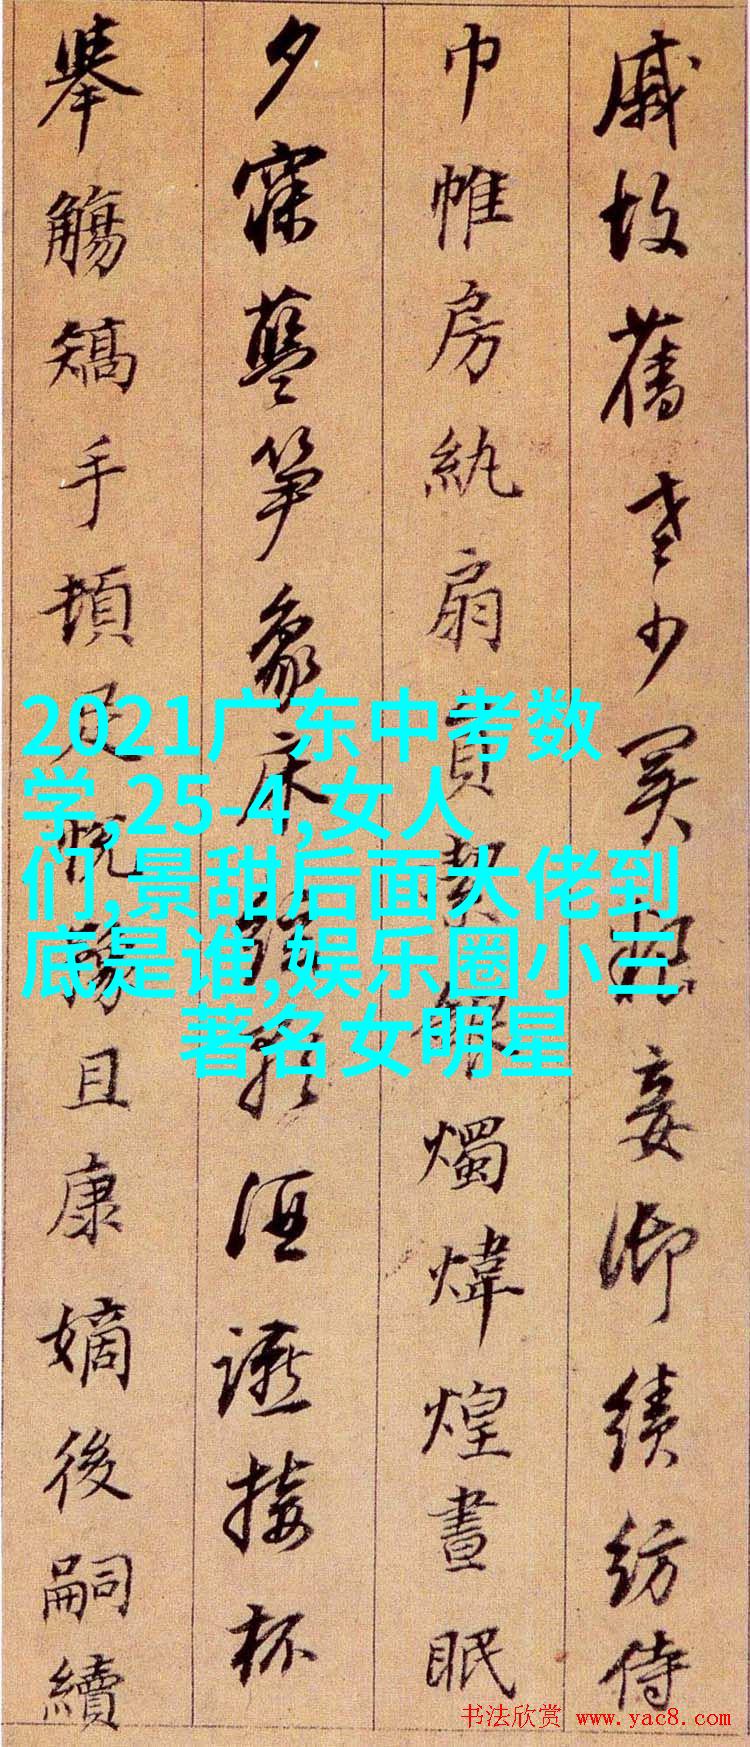 戚故舊老少異糧妾御績紡侍
巾帷房紈扇員潔銀燭煒煌晝眠
夕寐藍筍象床絃歌酒讌接杯
舉觴矯手頓足悅豫且康嫡後嗣續
2021广东中考数
学,25-4,女人
们,景甜后面大佬到
底是谁,娱乐圈小三
著名女明星
书法欣赏 www.yac8.com